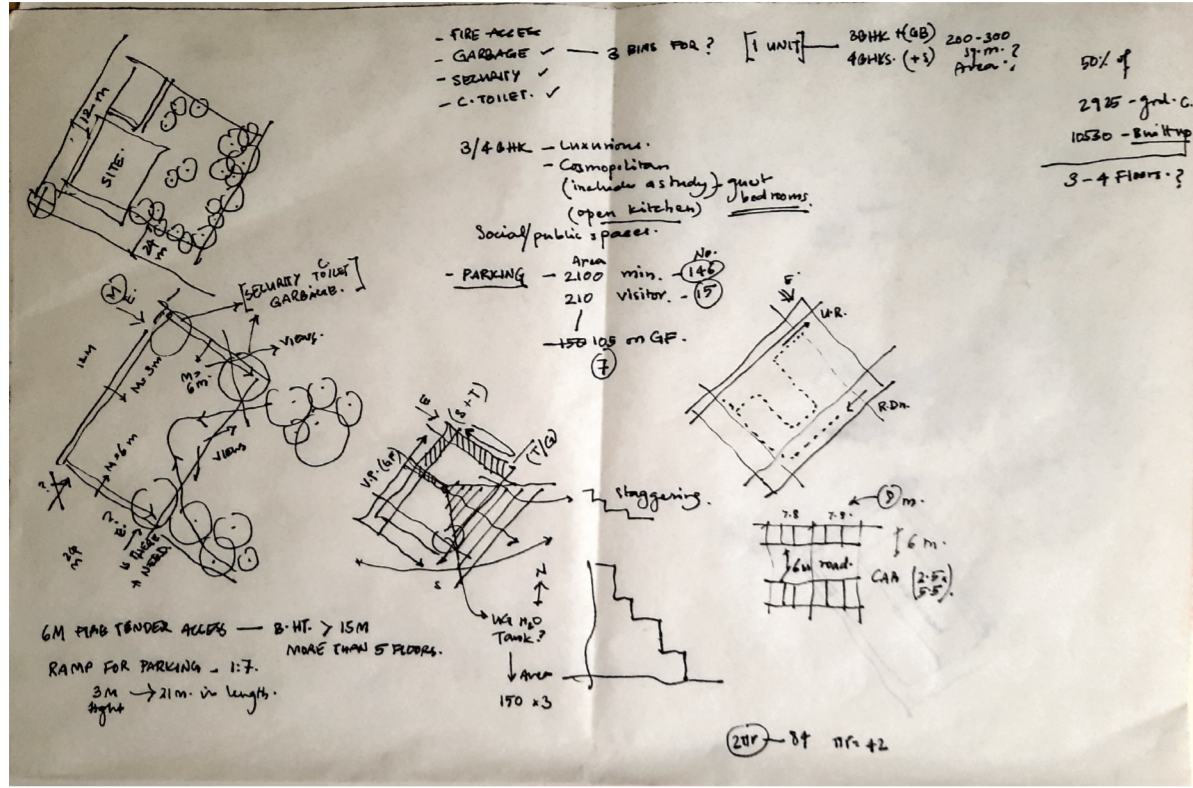 - FIRE ACCESS
- GARBAGE ✓ — 3 BINS FOR ?
- SECURITY ✓
- C. TOILET. ✓
[1 UNIT] — 3BHK + (GB) 200-300
4BHKS. (+S) sq.m. ?
Area.
50% of
2925 - grd. C.
10530 - Built up
3-4 Floors. ?
12 m
SITE.
24
3/4 BHK - Luxurious.
- Cosmopolitan
(includes a study) - guest
bedrooms.
(open kitchen)
Social/public spaces.
Area No.
- PARKING - 2100 min. - 146
210 visitor. - 15
150 105 on GF.
7
[SECURITY C. TOILET
GARBAGE.]
E.
12M
M = 3m
M =
6m.
VIEWS.
VIEWS
M = 6 m
?
24
M
E.
IS THERE
A NEED.
E
(S + T)
(T/G)
V.P. (GF)
S
Staggering.
N
UG H2O
Tank ?
Area
150 x 3
E.
U.R.
R.Dn.
8 m.
7.8 7.8
6 m.
6m road.
CAR (2.5 x
5.5).
6M FIRE TENDER ACCESS — B.HT. > 15M
MORE THAN 5 FLOORS.
RAMP FOR PARKING - 1:7.
3M → 21m. in length.
hght
2πr - 84 πr = 42